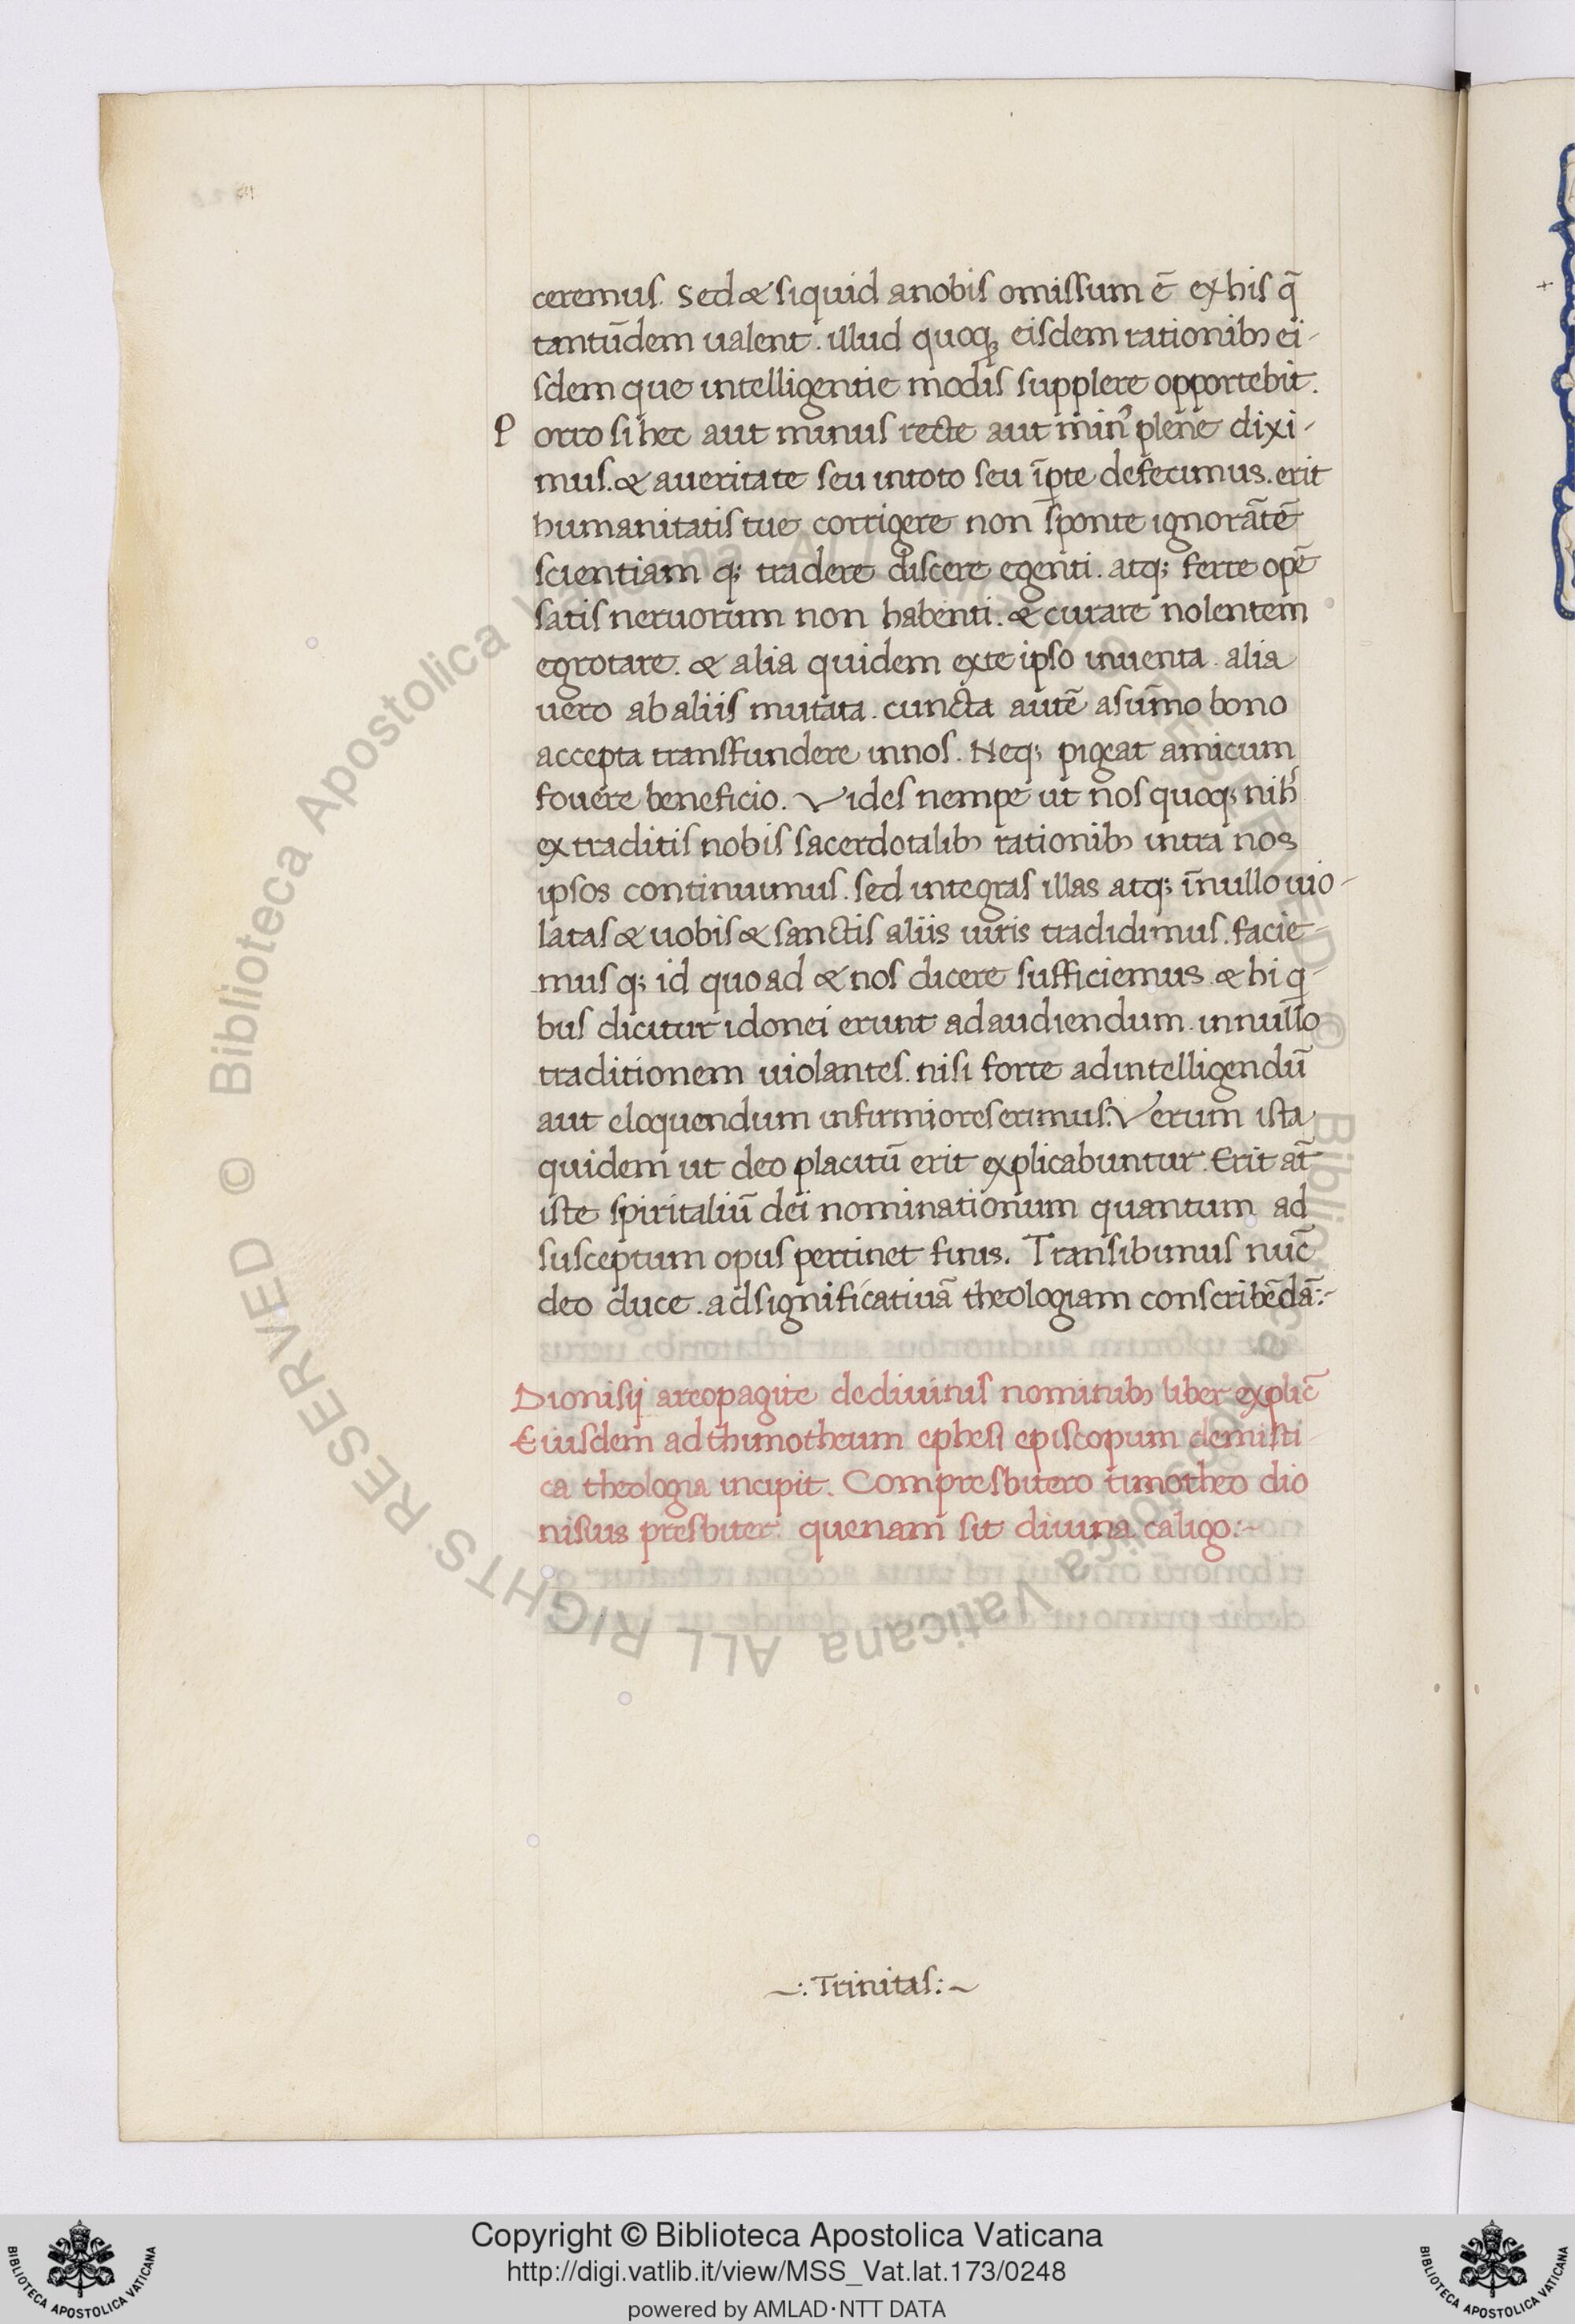 ceremus. Sed & siquid anobis omissum ē ex his q̄
tantūdem ualent. illud quoq; eisdem rationib; ei-
sdem que intelligentie modis supplere opportebit.
Porro si hec aut minus recte aut min' plene dixi-
mus. & aueritate seu intoto seu īpte defecimus. erit
humanitatis tue corrigere non sponte ignorātē
scientiam q; tradere discere egenti. atq; ferre opē
satis neruorum non habenti. & curare nolentem
egrotare. & alia quidem exte ipso inuenta. alia
uero ab aliis mutata. cuncta autē asūmo bono
accepta transfundere innos. Neq; pigeat amicum
fouere beneficio. Vides nempe ut nos quoq; nih̄
ex traditis nobis sacerdotalib; rationib; intra nos
ipsos continuimus. sed integras illas atq; īnullo uio-
latas & uobis & sanctis aliis uiris tradidimus. facie-
mus q; id quoad & nos dicere sufficiemus & hi q-
bus dicitur idonei erunt ad audiendum. innullo
traditionem uiolantes. nisi forte adintelligendū
aut eloquendum infirmiores erimus. Verum ista
quidem ut deo placitū erit explicabuntur. Erit at̄
iste spiritaliū dei nominationum quantum ad
susceptum opus pertinet finis. Transibimus nūc
deo duce. ad significatiuā theologiam conscribēdā:-
Dionisij areopagite dediuinis nominib; liber explic̄
Eiusdem ad thimotheum ephesi episcopum demisti
ca theologia incipit. Compresbitero timotheo dio
nisius presbiter. quenam sit diuina caligo:-
~:.Trinitas:~
© Biblioteca Apostolica Vaticana ALL RIGHTS RESERVED © Biblioteca Apostolica Vaticana ALL RIGHTS RESERVED
Copyright © Biblioteca Apostolica Vaticana
http://digi.vatlib.it/view/MSS_Vat.lat.173/0248
powered by AMLAD·NTT DATA
BIBLIOTECA APOSTOLICA VATICANA
BIBLIOTECA APOSTOLICA VATICANA